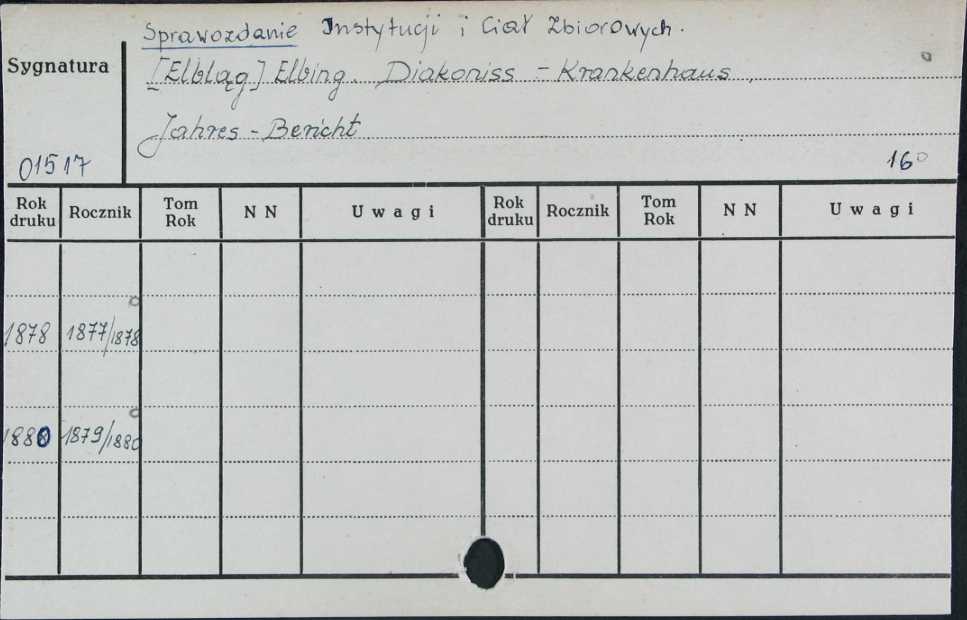 Sprawozdanie Instytucji i Ciał Zbiorowych.
Sygnatura
[Elbląg] Elbing. Diakoniss - Krankenhaus,
Jahres - Bericht
01517
16°
Rok druku Rocznik Tom Rok N N Uwagi Rok druku Rocznik Tom Rok N N Uwagi
1878 1877/1878
1880 1879/1880